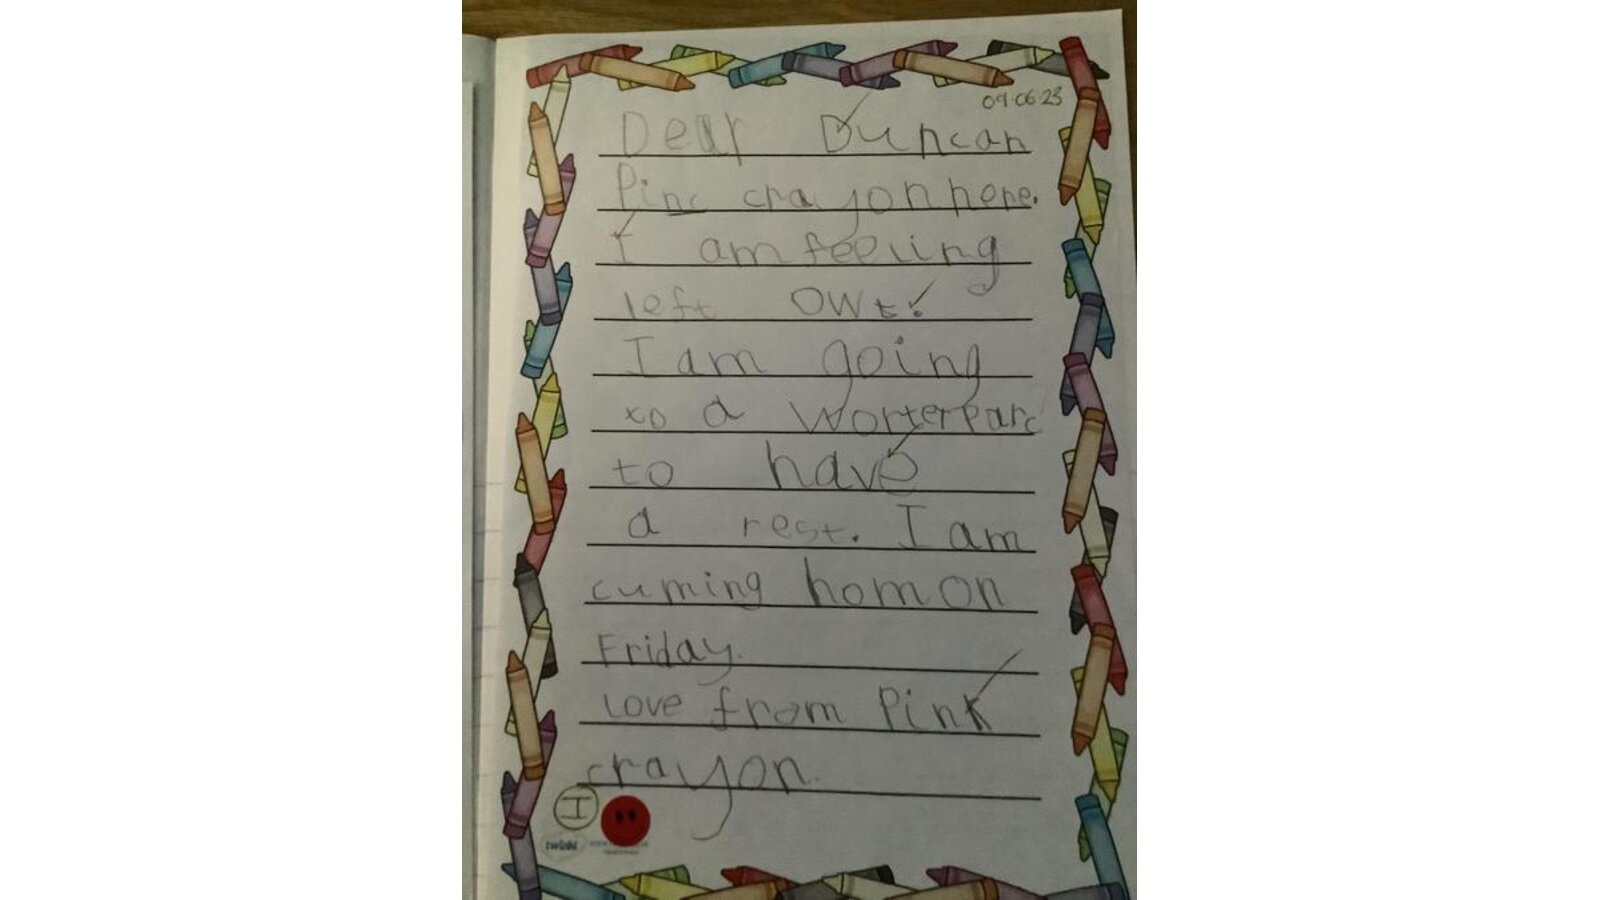 09.06.23
Dear Duncan
Pinc crayon here.
I am feeling
left owt!
I am going
to a worterparc
to have
a rest. I am
cuming hom on
Friday.
love from Pink
crayon.
I
twinkl